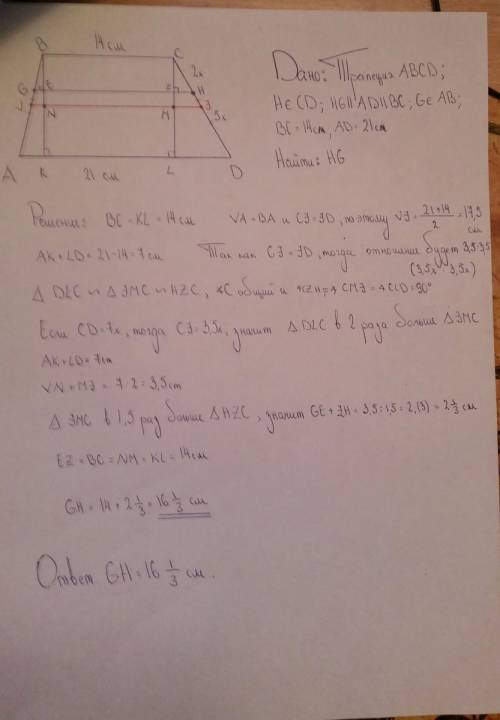 14 см
B
C
2x
G
E
Z
H
V
N
M
J
5x
A
K
21 см
L
D
Дано: Трапеция ABCD;
H∈CD; HG||AD||BC; G∈AB;
BC=14cm, AD=21cm
Найти: HG
Решение: BC=KL=14см VA=BA и CJ=JD, поэтому VJ=(21+14)/2=17,5 см
AK+LD=21-14=7см Так как CJ=JD, тогда отношение будет 3,5:3,5
(3,5x:3,5x)
Δ DLC ∽ Δ JMC ∽ HZC, ∢C общий и ∢CZH=∢CMJ=∢CLD=90°
Если CD=7x, тогда CJ=3,5x, значит Δ DLC в 2 раза больше Δ JMC
AK+LD=7cm
VN+MJ=7:2=3,5cm
Δ JMC в 1,5 раз больше Δ HZC, значит GE+ZH=3,5:1,5=2,(3)=2 1/3 см
EZ=BC=NM=KL=14см
GH=14+2 1/3=16 1/3 см
Ответ GH=16 1/3 см.